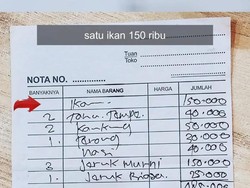 satu ikan 150 ribu
Tuan
Toko
NOTA NO.
BANYAKNYA NAMA BARANG HARGA JUMLAH
Ikan 150.000
2 Tahu Tempe 40.000
2 Kangkung 50.000
1. Terong 30.000
Nasi 40.000
3 Jeruk Murni 150.000
1. Jeruk 25.000